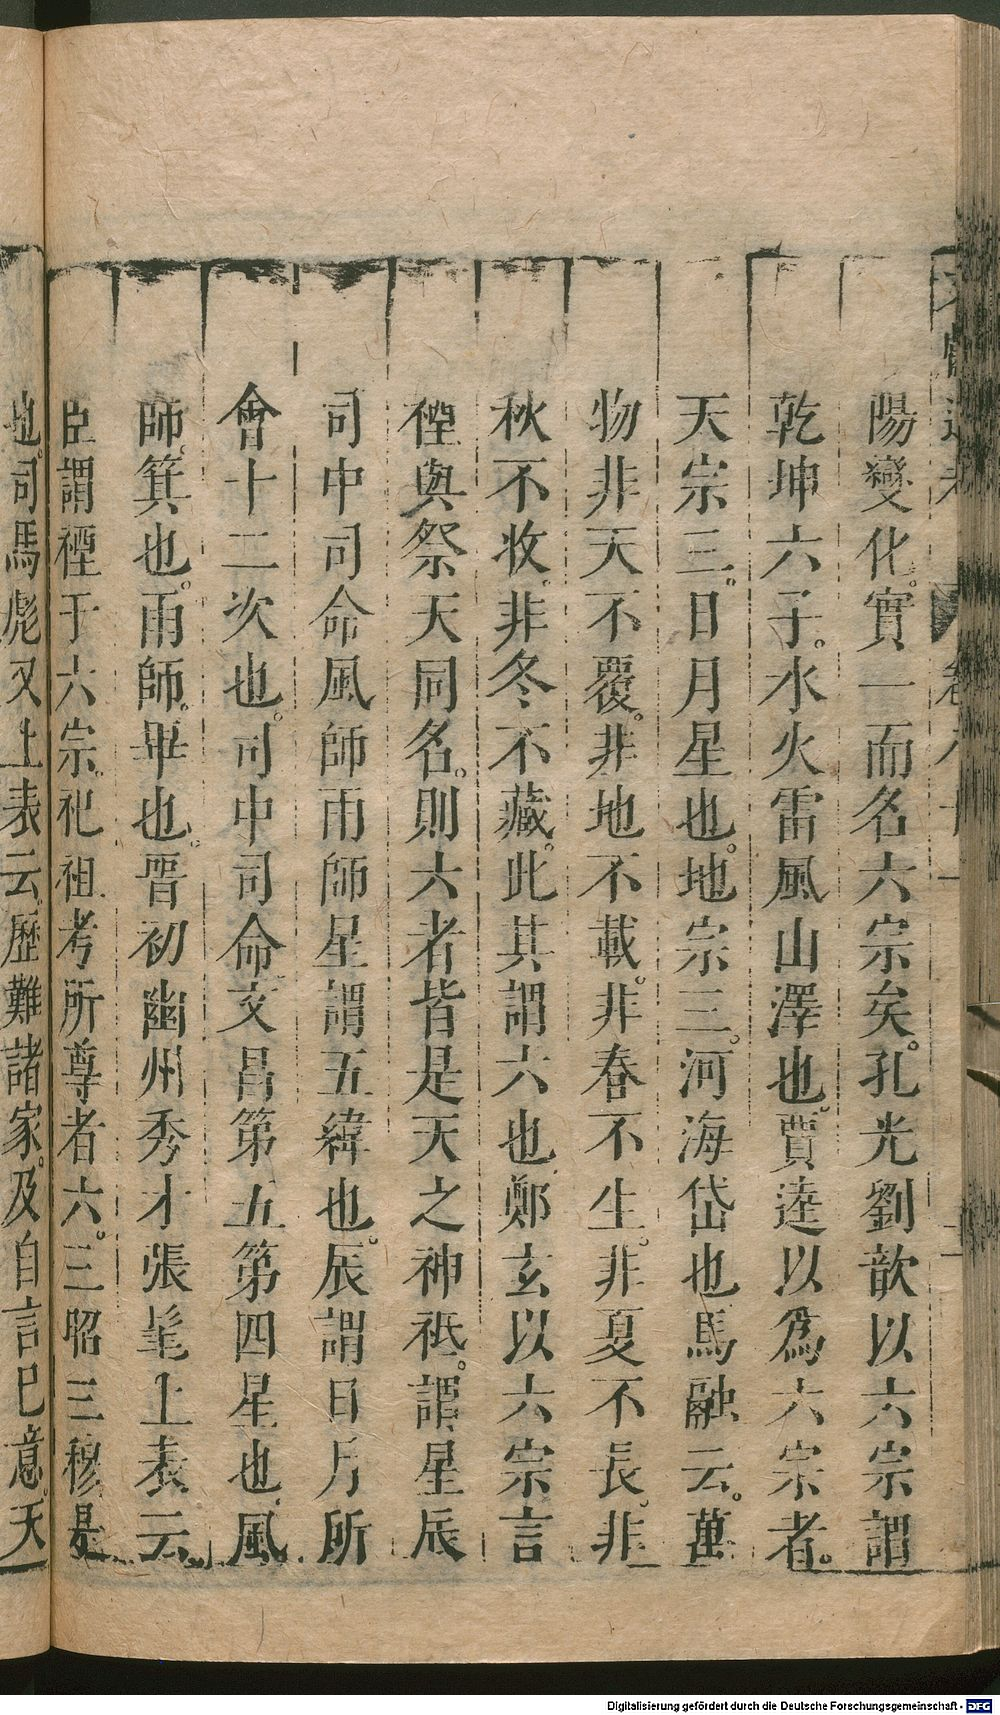 陽變化。實一而名六宗矣。孔光劉歆以六宗謂
乾坤六子。水火雷風山澤也。賈逵以爲六宗者。
天宗三。日月星也。地宗三。河海岱也馬融云。萬
物非天不覆。非地不載。非春不生。非夏不長。非
秋不收。非冬不藏。此其謂六也鄭玄以六宗言
禋與祭天同名。則六者皆是天之神祇。謂星辰
司中司命風師雨師星謂五緯也。辰謂日月所
會十二次也。司中司命文昌第五第四星也。風
師。箕也。雨師。畢也。晉初幽州秀才張髦上表云
臣謂禋于六宗。祀祖考所尊者六。三昭三穆是
也。司馬彪又上表云。歷難諸家。及自言己意。天
Digitalisierung gefördert durch die Deutsche Forschungsgemeinschaft - DFG